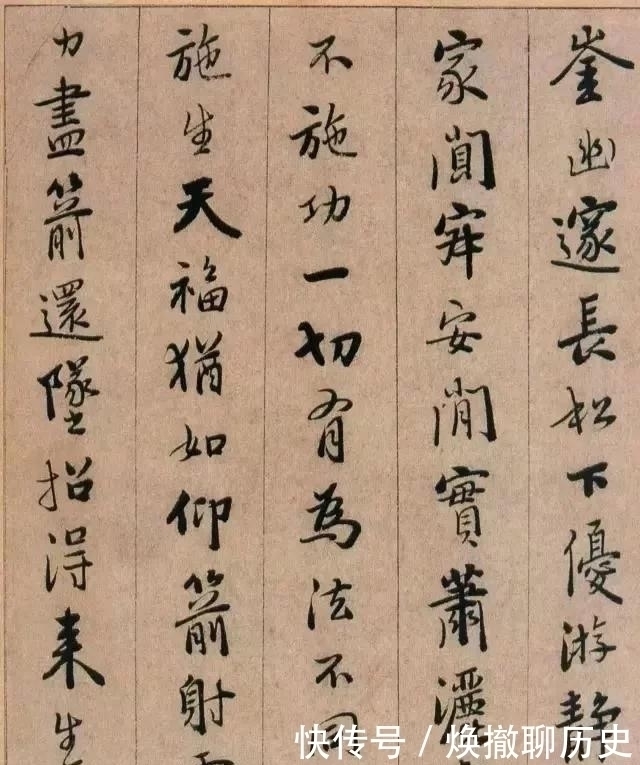 崟幽邃長松下優游静
家闃寂安閒實蕭灑
不施功一切有為法不同
施生天福猶如仰箭射
力盡箭還墜招得来生
快传号 / 焕撤聊历史